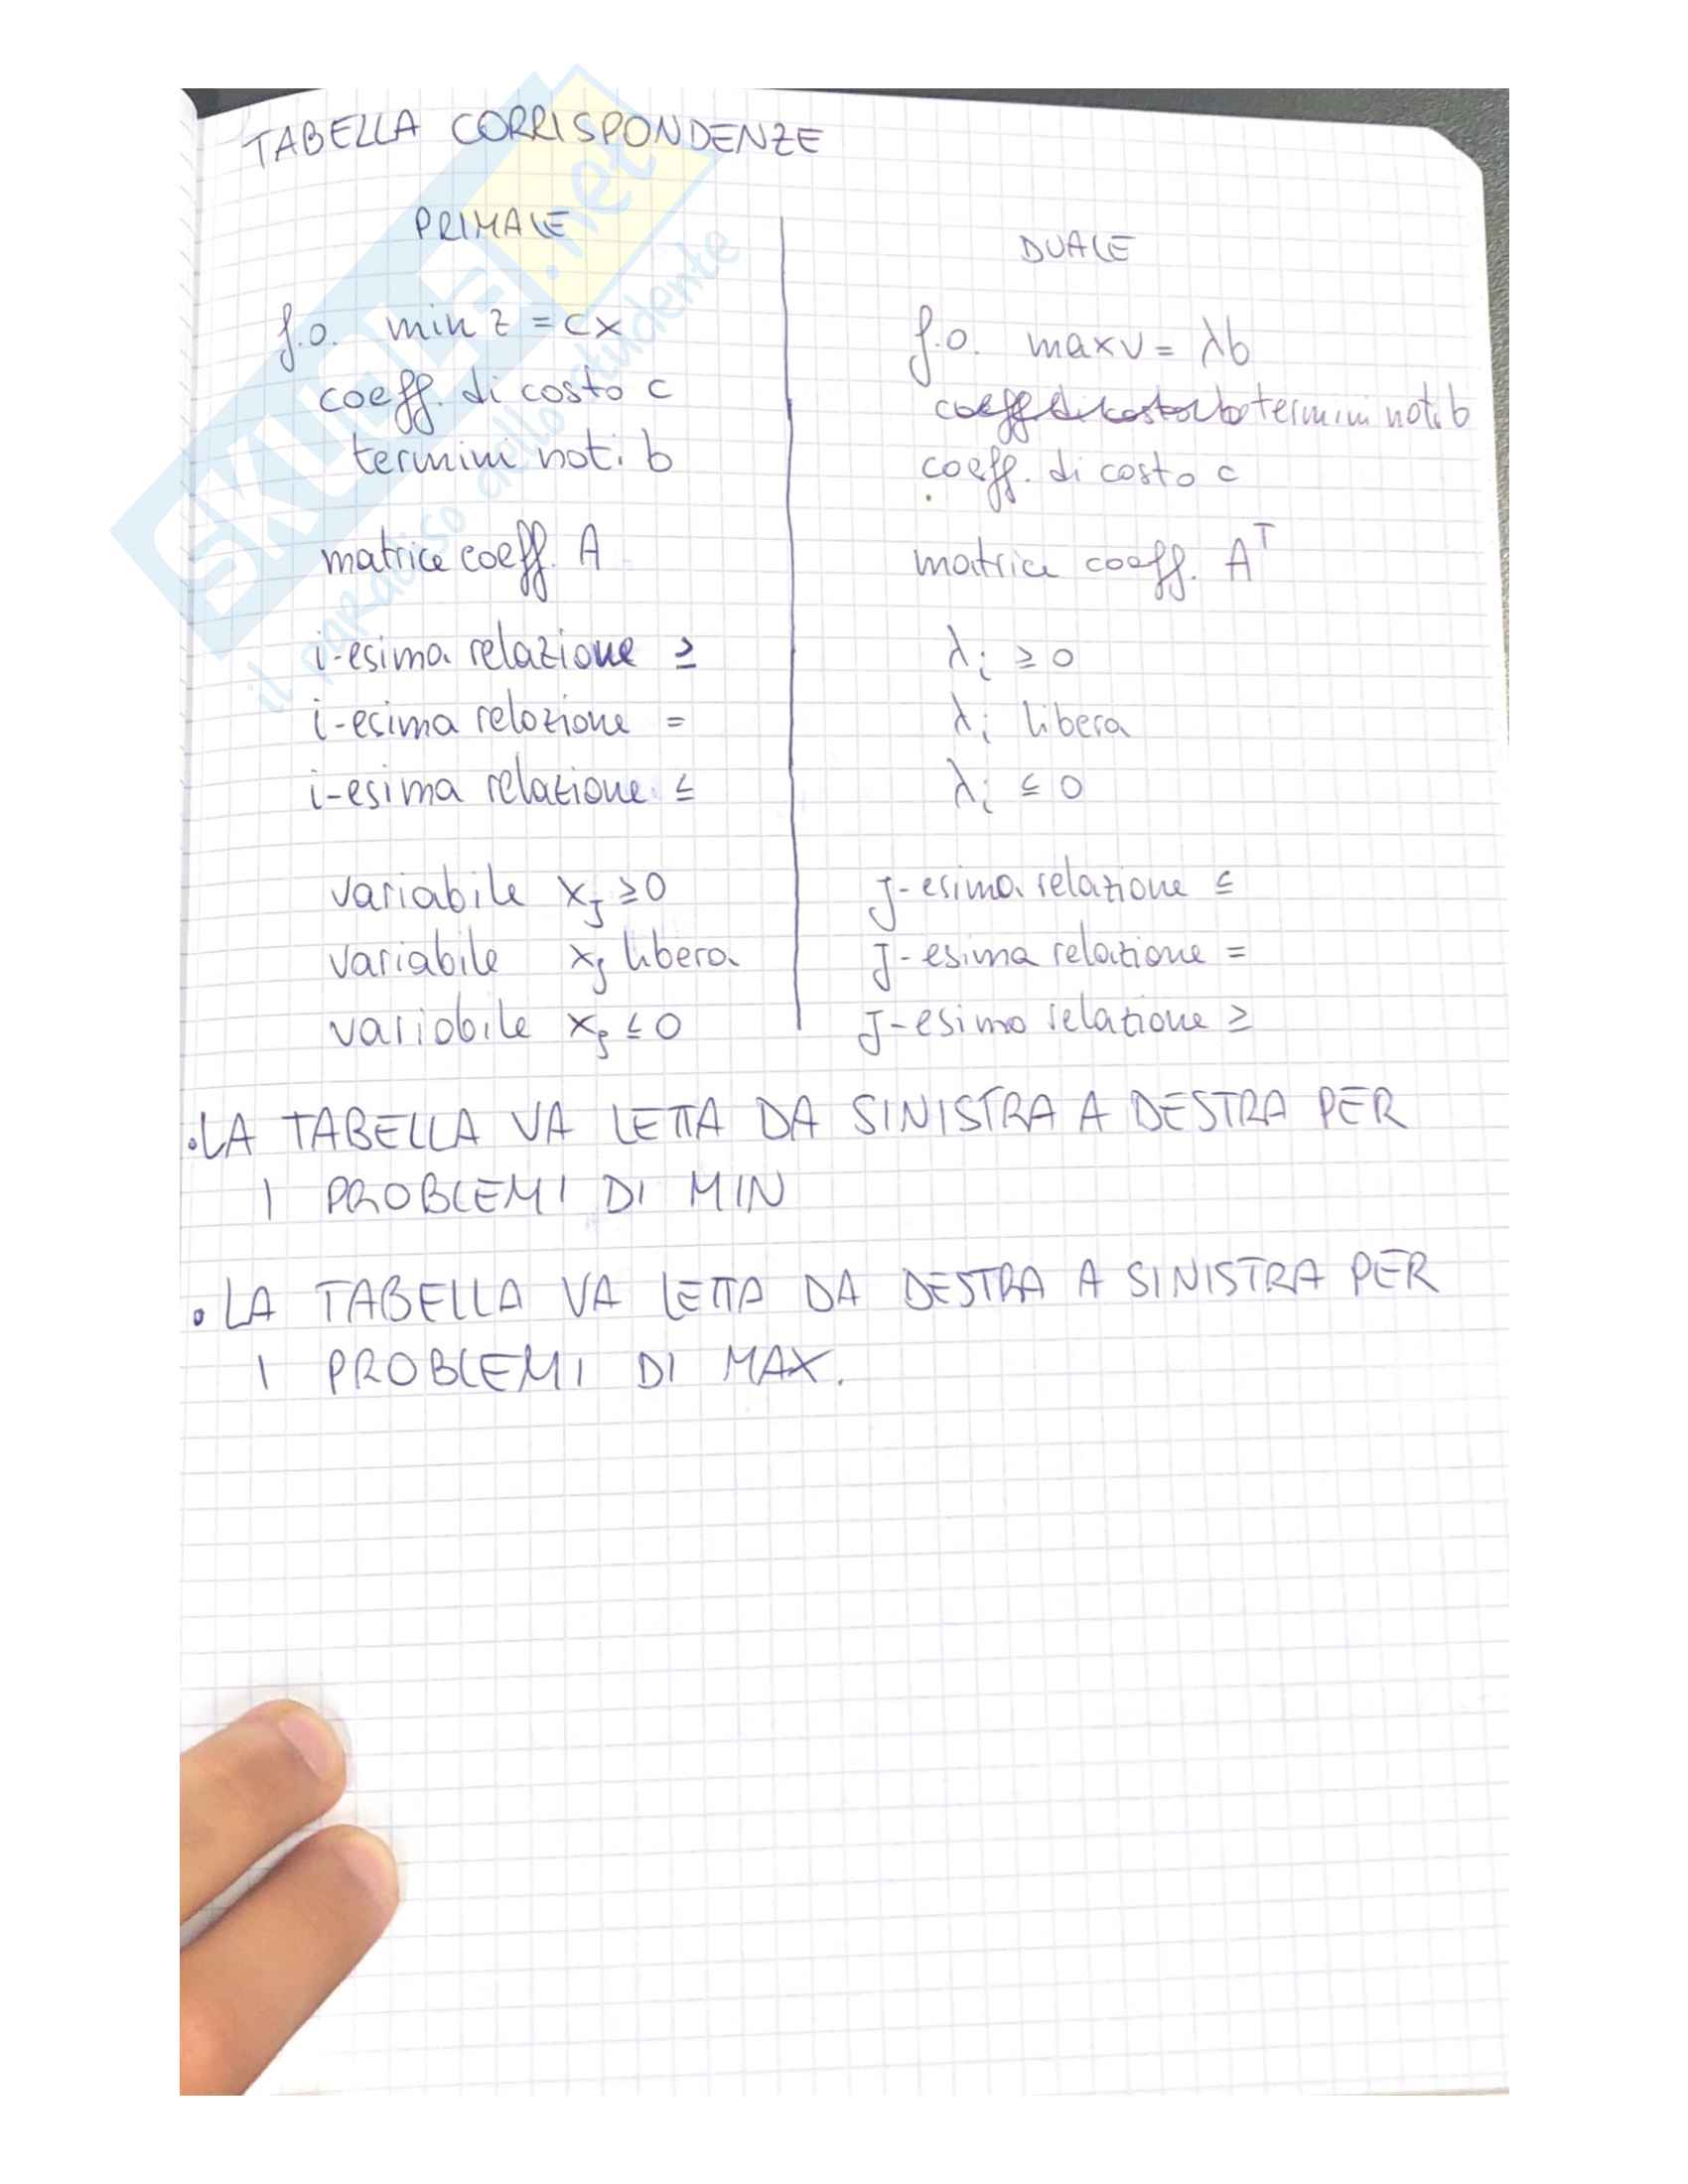 TABELLA CORRISPONDENZE
PRIMALE
DUALE
f.o. min z = cx
f.o. max v = λb
coeff. di costo c
termini noti b
termini noti b
coeff. di costo c
matrice coeff. A
matrice coeff. Aᵀ
i-esima relazione ≥
λi ≥ 0
i-esima relazione =
λi libera
i-esima relazione ≤
λi ≤ 0
variabile xj ≥ 0
J-esima relazione ≤
variabile xj libera
J-esima relazione =
variabile xj ≤ 0
J-esima relazione ≥
• LA TABELLA VA LETTA DA SINISTRA A DESTRA PER
I PROBLEMI DI MIN
• LA TABELLA VA LETTA DA DESTRA A SINISTRA PER
I PROBLEMI DI MAX.
SKUOLA.net
il paradiso dello studente